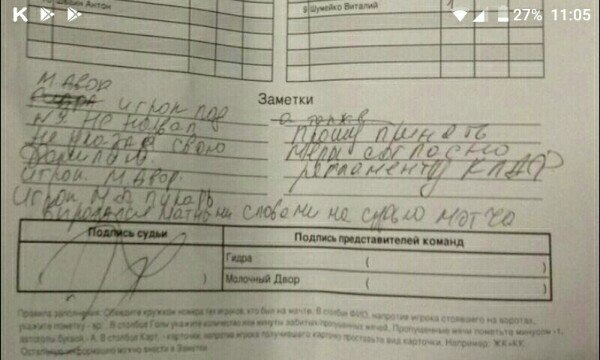 27% 11:05
Антон
9 Шумейко Виталий
М ДВОР
Заметки
игрок под
а также
№3 не назвал
Прошу принять
не указал свою
меры согласно
фамилию
регламенту КЛДФ
Игрок М Двор
Игрок М Д
матными словами на судью матча
Подпись судьи
Подпись представителей команд
Гидра ( )
) Молочный Двор ( )
Правила заполнения: Обведите кружком номера тех игроков, кто был на матче. В столбце ФИО, напротив игрока стоявшего на воротах,
укажите пометку - вр. В столбце Голы укажите количество или минуты забитых-пропущенных мячей. Пропущенные мячи пометьте минусом -1,
автоголы буквой - А. В столбце Карт. - карточки, напротив игрока получившего карточку проставьте вид карточки. Например: ЖК+КК.
Остальную информацию можно внести в Заметки.